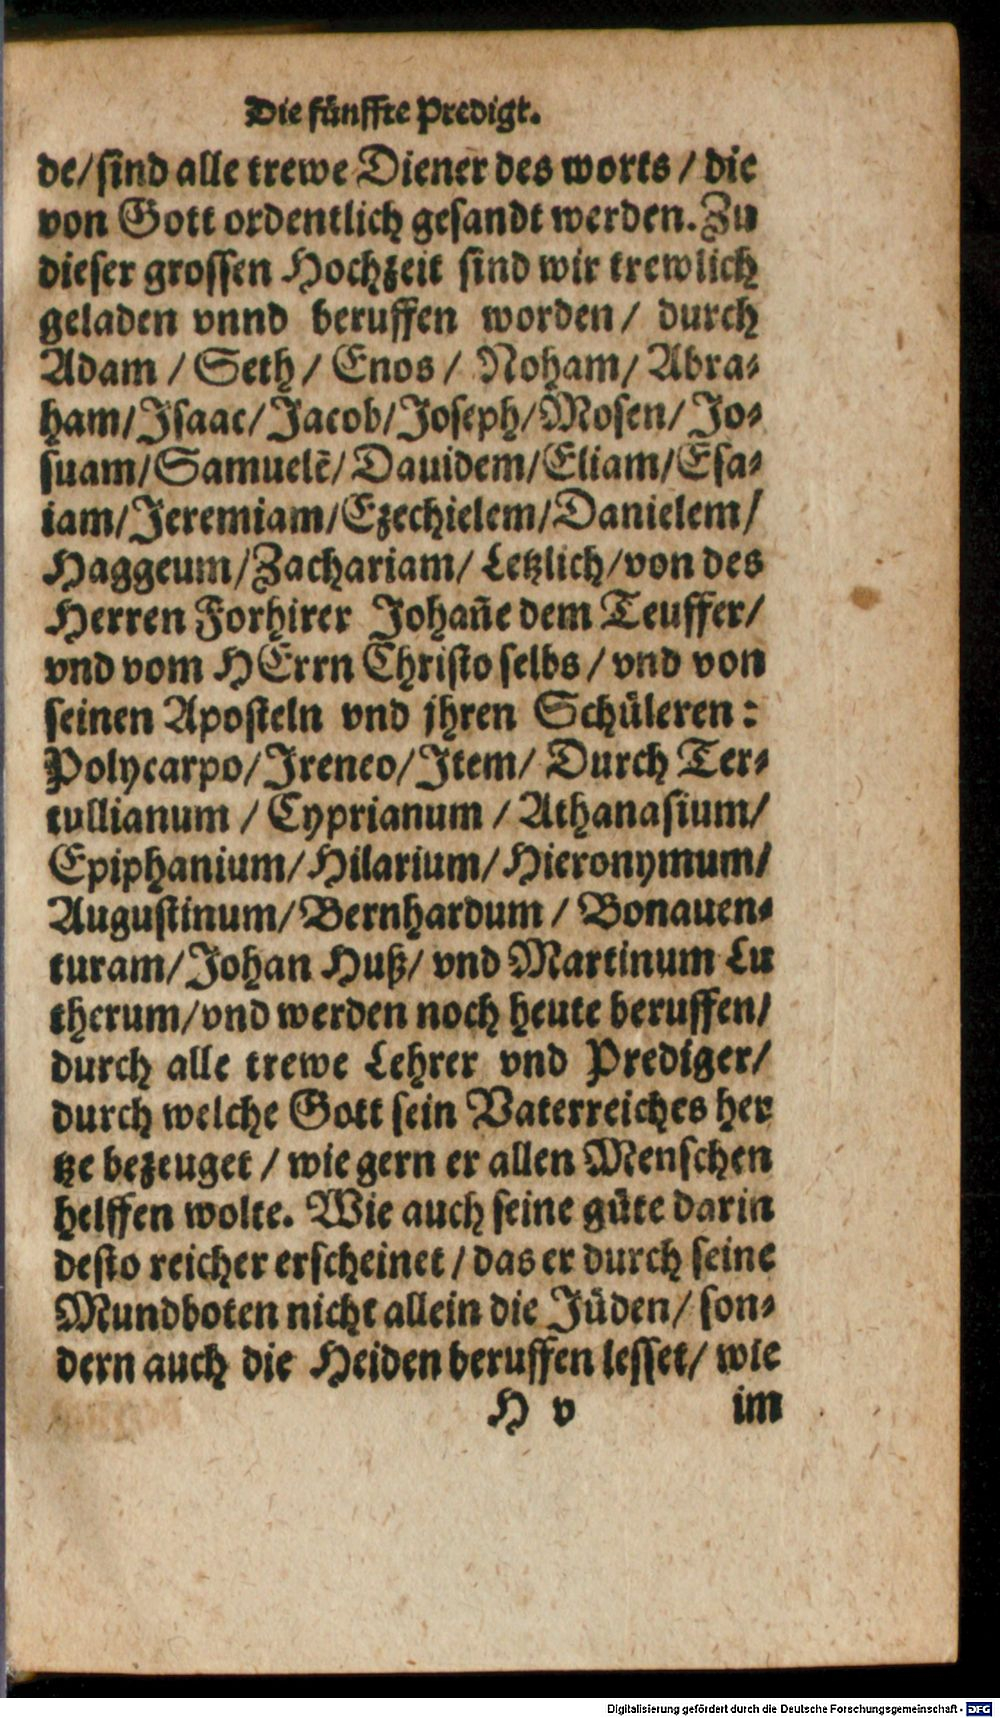 Die fünffte Predigt.
de/sind alle trewe Diener des worts / die
von Gott ordentlich gesandt werden. Zu
dieser grossen Hochzeit sind wir trewlich
geladen vnnd beruffen worden/ durch
Adam / Seth/ Enos/ Noham/ Abra-
ham/Isaac/Jacob/Joseph/Mosen/ Jo-
suam/Samuelē/Dauidem/Eliam/Esa-
iam/Jeremiam/Ezechielem/Danielem/
Haggeum/Zachariam/ Letzlich/von des
Herren Forhirer Johañe dem Teuffer/
vnd vom HErrn Christo selbs / vnd von
seinen Aposteln vnd jhren Schüleren:
Polycarpo/Ireneo/Item/ Durch Ter-
tullianum / Cyprianum / Athanasium/
Epiphanium/Hilarium/Hieronymum/
Augustinum/Bernhardum / Bonauen-
turam/Johan Huß/ vnd Martinum Lu
therum/vnd werden noch heute beruffen/
durch alle trewe Lehrer vnd Prediger/
durch welche Gott sein Vaterreiches her
tze bezeuget / wie gern er allen Menschen
helffen wolte. Wie auch seine güte darin
desto reicher erscheinet / das er durch seine
Mundboten nicht allein die Jüden/ son-
dern auch die Heiden beruffen lesset/ wie
H v im
Digitalisierung gefördert durch die Deutsche Forschungsgemeinschaft - DFG